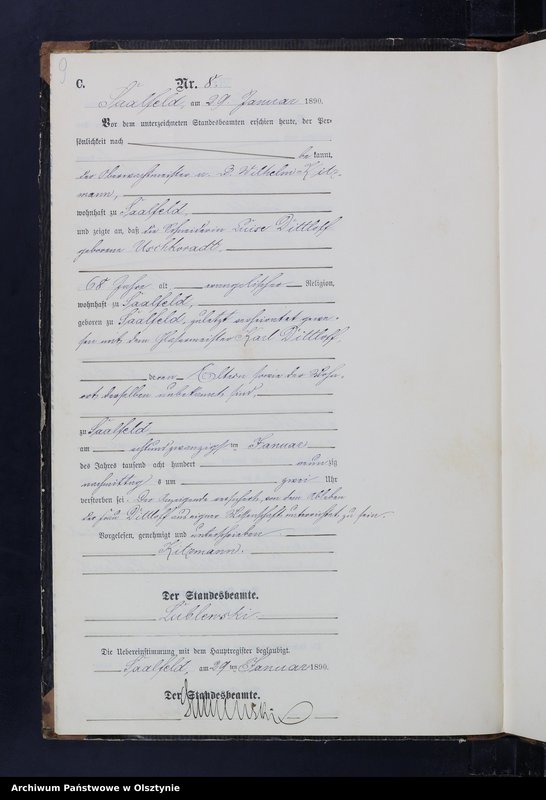 9
C.
Nr. 8.
Saalfeld, am 29. Januar 1890.
Vor dem unterzeichneten Standesbeamten erschien heute, der Per-
sönlichkeit nach
bekannt,
der Oberwachtmeister a. D. Wilhelm Kitz-
mann,
wohnhaft zu Saalfeld,
und zeigte an, daß die Schneiderin Luise Dittloff
geborene Uschkoradt,
68 Jahre alt, evangelischer Religion,
wohnhaft zu Saalfeld,
geboren zu Saalfeld, zuletzt verheirathet gewe-
sen mit dem Glasermeister Karl Dittloff,
deren Eltern sowie der Wohn-
ort derselben unbekannt sind,
zu Saalfeld
am achtundzwanzigsten Januar
des Jahres tausend acht hundert neunzig
nachmittag s um zwei Uhr
verstorben sei. Der Anzeigende versichert, von dem Ableben
der Frau Dittloff aus eigener Wissenschaft unterrichtet zu sein.
Vorgelesen, genehmigt und unterschrieben
Kitzmann.
Der Standesbeamte.
Lüblewski
Die Uebereinstimmung mit dem Hauptregister beglaubigt.
Saalfeld, am 29ten Januar 1890.
Der Standesbeamte.
Archiwum Państwowe w Olsztynie